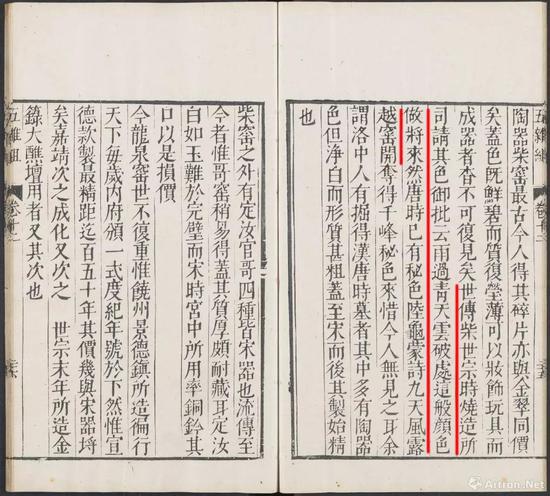 陶器柴窯最古今人得其碎片亦與金翠同價
矣蓋色既鮮碧而質復瑩薄可以妝飾玩具而
成器者杳不可復見矣世傳柴世宗時燒造所
司請其色御批云雨過青天雲破處這般顏色
做將來然唐時已有秘色陸龜蒙詩九天風露
越窯開奪得千峰秘色來惜今人無見之耳余
謂洛中人有掘得漢唐時墓者其中多有陶器
色但淨白而形質甚粗蓋至宋而後其製始精
也
柴窯之外有定汝官哥四種皆宋器也流傳至
今者惟哥窯稍易得蓋其質厚頗耐藏耳定汝
白如玉難於完璧而宋時宮中所用率銅鈐其
口以是損價
今龍泉窯世不復重惟饒州景德鎮所造徧行
天下每歲內府頒一式度紀年號於下然惟宣
德款製最精距迄百五十年其價幾與宋器埒
矣嘉靖次之成化又次之 世宗末年所造金
籙大醮壇用者又其次也
五雜組 卷十二
Artron.Net